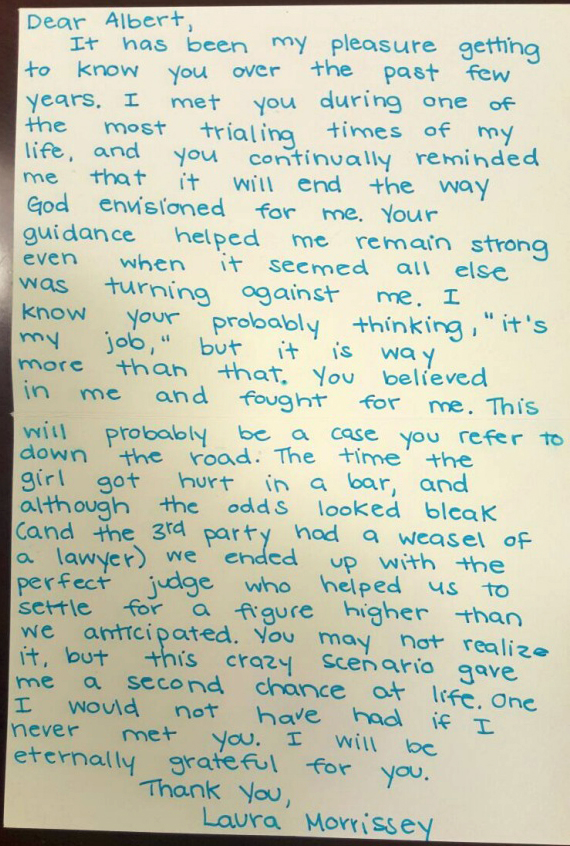 Dear Albert,
It has been my pleasure getting
to know you over the past few
years. I met you during one of
the most trialing times of my
life, and you continually reminded
me that it will end the way
God envisioned for me. Your
guidance helped me remain strong
even when it seemed all else
was turning against me. I
know your probably thinking, "it's
my job," but it is way
more than that. You believed
in me and fought for me. This
will probably be a case you refer to
down the road. The time the
girl got hurt in a bar, and
although the odds looked bleak
(and the 3rd party had a weasel of
a lawyer) we ended up with the
perfect judge who helped us to
settle for a figure higher than
we anticipated. You may not realize
it, but this crazy scenario gave
me a second chance at life. One
I would not have had if I
never met you. I will be
eternally grateful for you.
Thank You,
Laura Morrissey